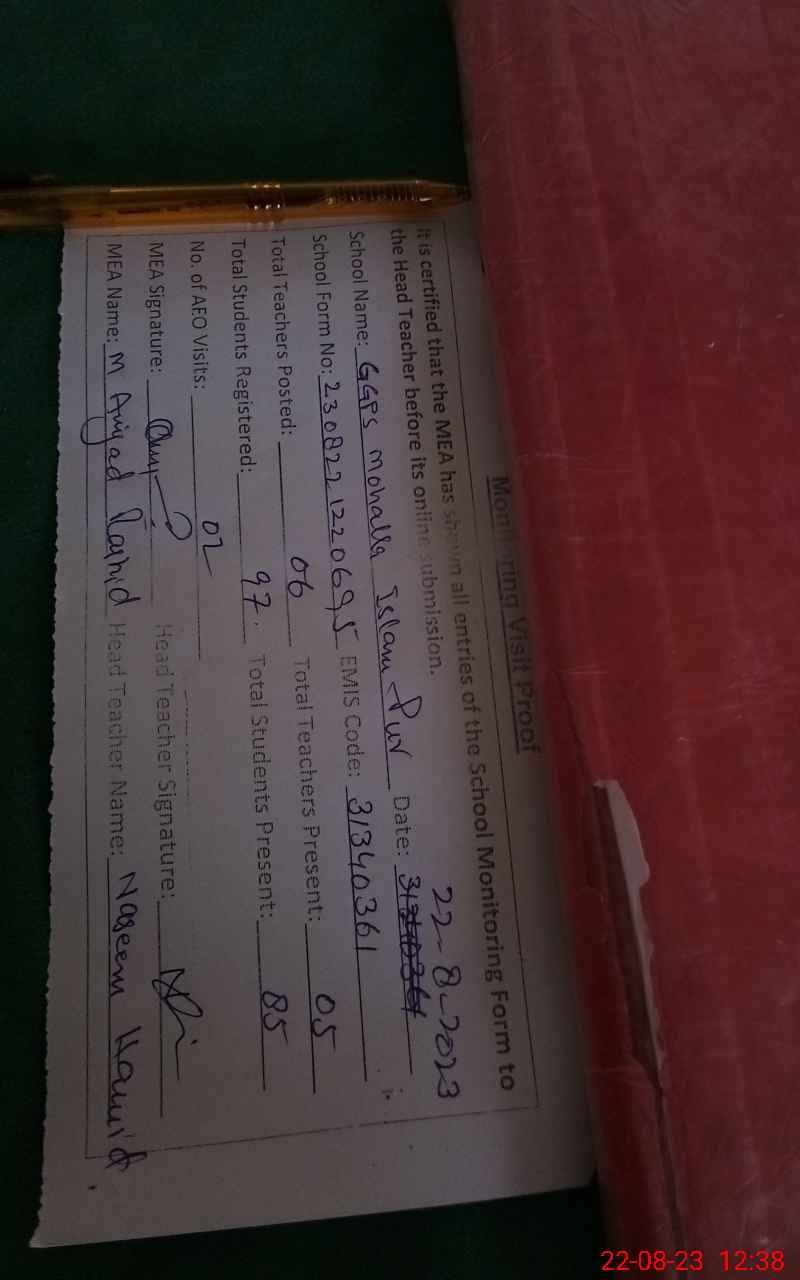 Monitoring Visit Proof
It is certified that the MEA has shown all entries of the School Monitoring Form to
the Head Teacher before its online submission.
22-8-2023
School Name: GGPS Mohalla Islam Pur Date: 31340361
School Form No: 2308221220695 EMIS Code: 31340361
Total Teachers Posted: 06 Total Teachers Present: 05
Total Students Registered: 97 Total Students Present: 85
No. of AEO Visits: 02
MEA Signature: Head Teacher Signature:
MEA Name: M Amjad Rashid Head Teacher Name: Naseem Hamid
22-08-23 12:38